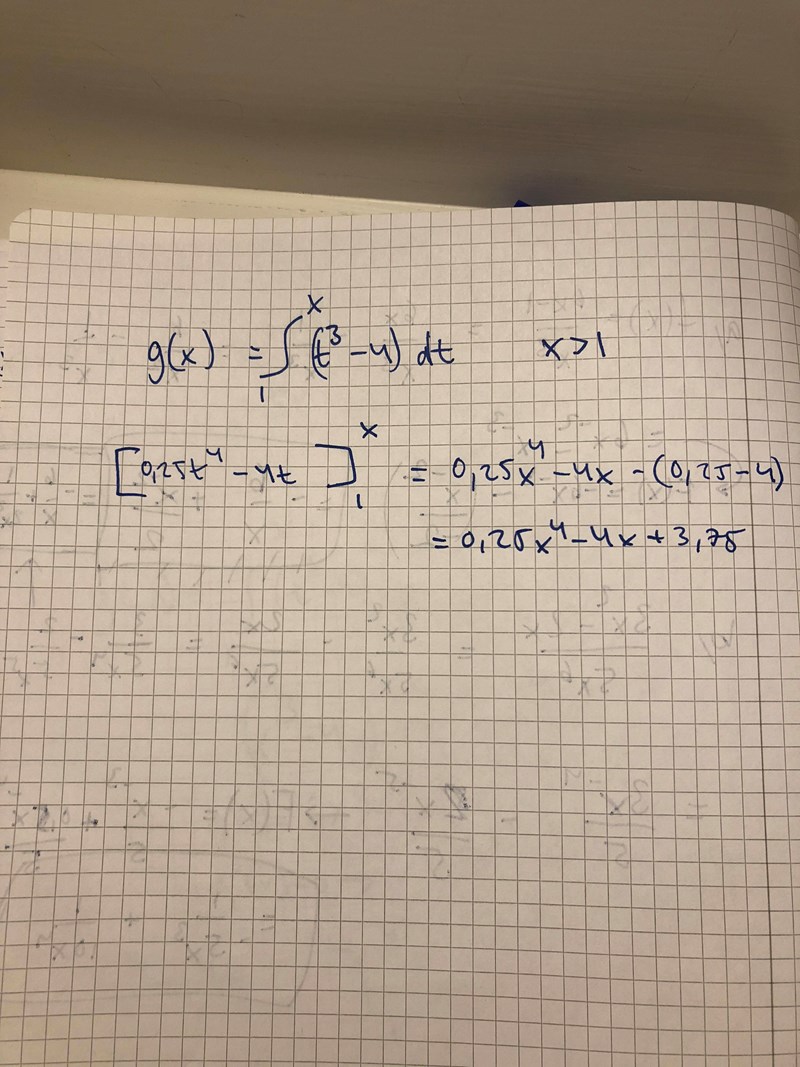 g(x) = ∫₁ˣ (t³ - 4) dt x > 1
[0,25t⁴ - 4t]₁ˣ = 0,25x⁴ - 4x - (0,25 - 4)
= 0,25x⁴ - 4x + 3,75